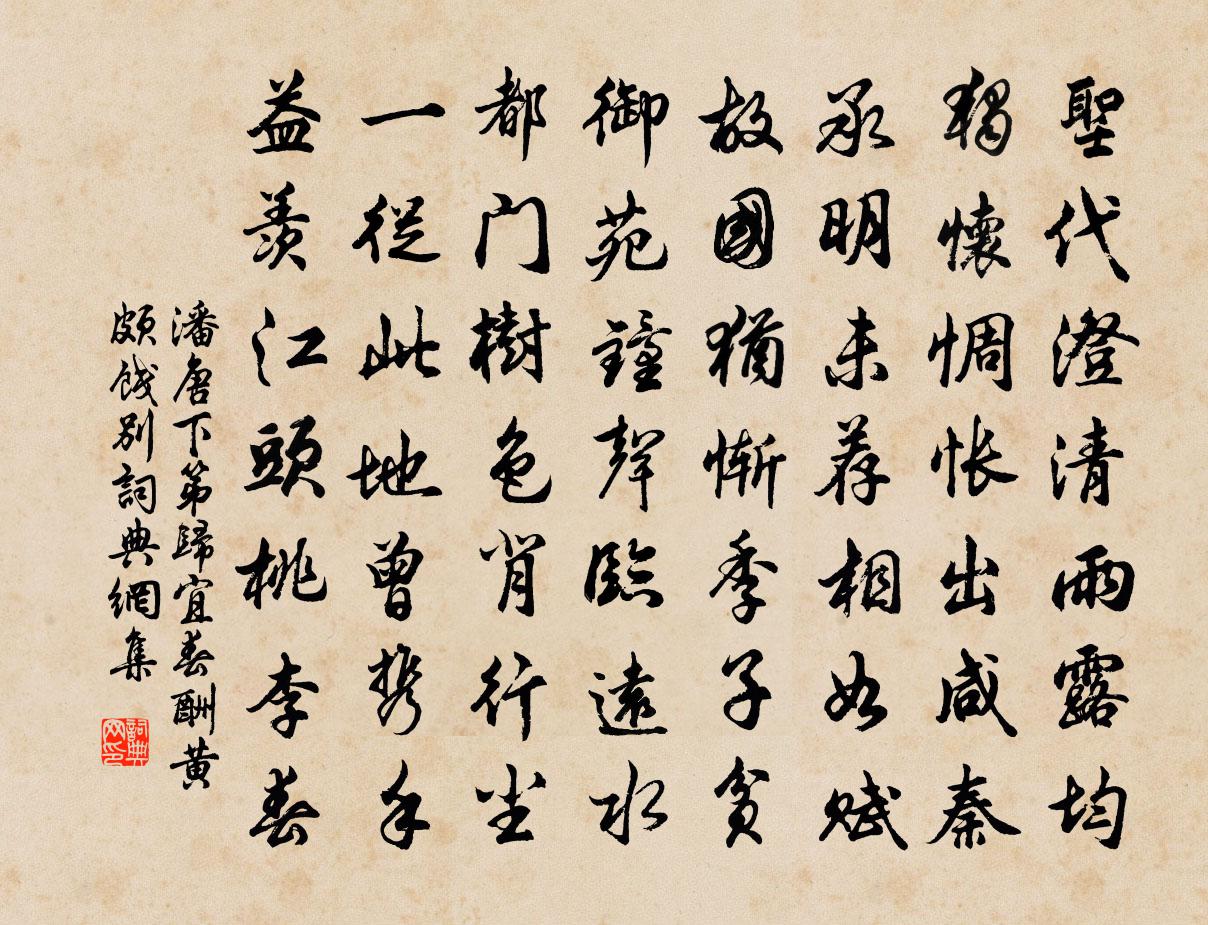 聖代澄清雨露均
獨懷惆悵出咸秦
承明未荐相如賦
故國猶慚季子貧
御苑鐘聲臨遠水
都門樹色背行尘
一從此地曾携手
益羨江頭桃李春
潘唐下第歸宜春酬黃
頗餞别詞典網集
詞典
网印